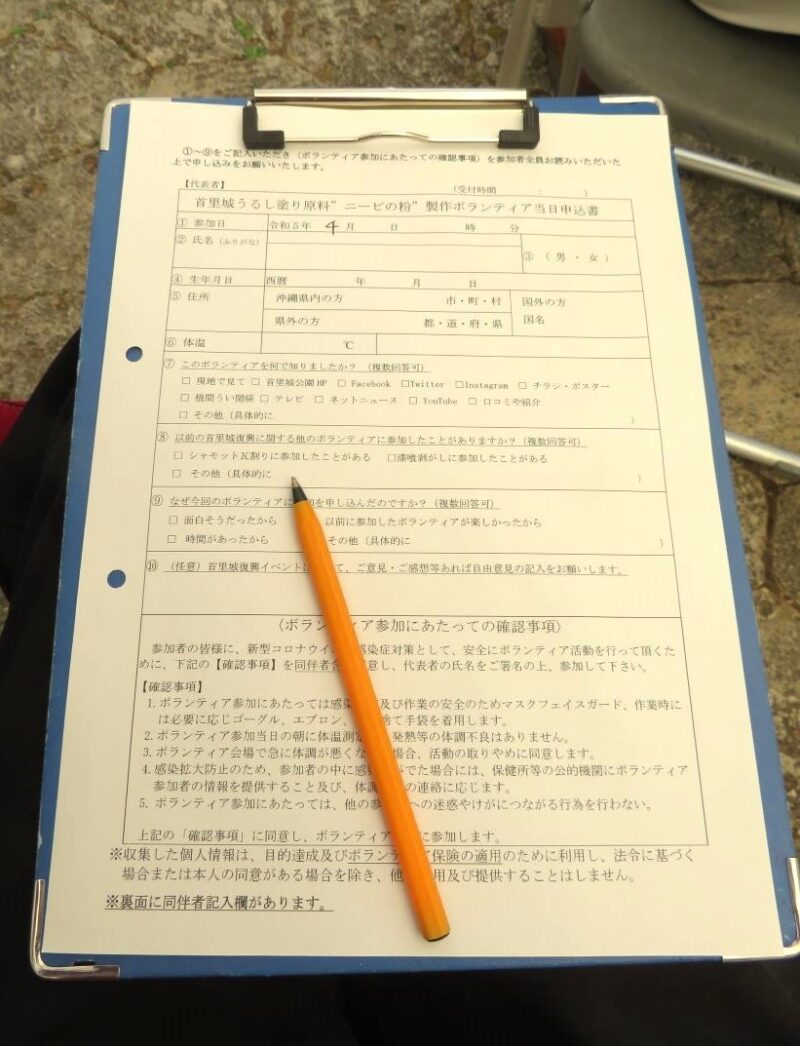 ①～⑩をご記入いただき〈ボランティア参加にあたっての確認事項〉を参加者全員お読みいただいた
上で申し込みをお願いいたします。
【代表者】 （受付時間 ： ）
首里城うるし塗り原料"ニービの粉"製作ボランティア当日申込書
① 参加日 令和５年 4 月 日 時 分
② 氏名（ふりがな） ③ （ 男 ・ 女 ）
④ 生年月日 西暦 年 月 日
⑤ 住所 沖縄県内の方 市・町・村 国外の方
県外の方 都・道・府・県 国名
⑥ 体温 ℃
⑦ このボランティアを何で知りましたか？（複数回答可）
□ 現地で見て □ 首里城公園HP □ Facebook □Twitter □Instagram □ チラシ・ポスター
□ 根間うい関係 □ テレビ □ ネットニュース □ YouTube □ 口コミや紹介
□ その他（具体的に ）
⑧ 以前の首里城復興に関する他のボランティアに参加したことがありますか？（複数回答可）
□ シャモット瓦割りに参加したことがある □漆喰剥がしに参加したことがある
□ その他（具体的に ）
⑨ なぜ今回のボランティアに 加を申し込んだのですか？（複数回答可）
□ 面白そうだったから 以前に参加したボランティアが楽しかったから
□ 時間があったから その他（具体的に ）
⑩ （任意）首里城復興イベントに て、ご意見・ご感想等あれば自由意見の記入をお願いします。
〈ボランティア参加にあたっての確認事項〉
参加者の皆様に、新型コロナウイ 感染症対策として、安全にボランティア活動を行って頂くた
めに、下記の【確認事項】を同伴者含 意し、代表者の氏名をご署名の上、参加して下さい。
【確認事項】
1. ボランティア参加にあたっては感 及び作業の安全のためマスクフェイスガード、作業時に
は必要に応じゴーグル、エプロン、 捨て手袋を着用します。
2. ボランティア参加当日の朝に体温測 発熱等の体調不良はありません。
3. ボランティア会場で急に体調が悪くな 場合、活動の取りやめに同意します。
4. 感染拡大防止のため、参加者の中に感 がでた場合には、保健所等の公的機関にボランティア
参加者の情報を提供すること及び、体調 の連絡に応じます。
5. ボランティア参加にあたっては、他の参 への迷惑やけがにつながる行為を行わない。
上記の「確認事項」に同意し、ボランティア に参加します。
※収集した個人情報は、目的達成及びボランティア保険の適用のために利用し、法令に基づく
場合または本人の同意がある場合を除き、他 用及び提供することはしません。
※裏面に同伴者記入欄があります。